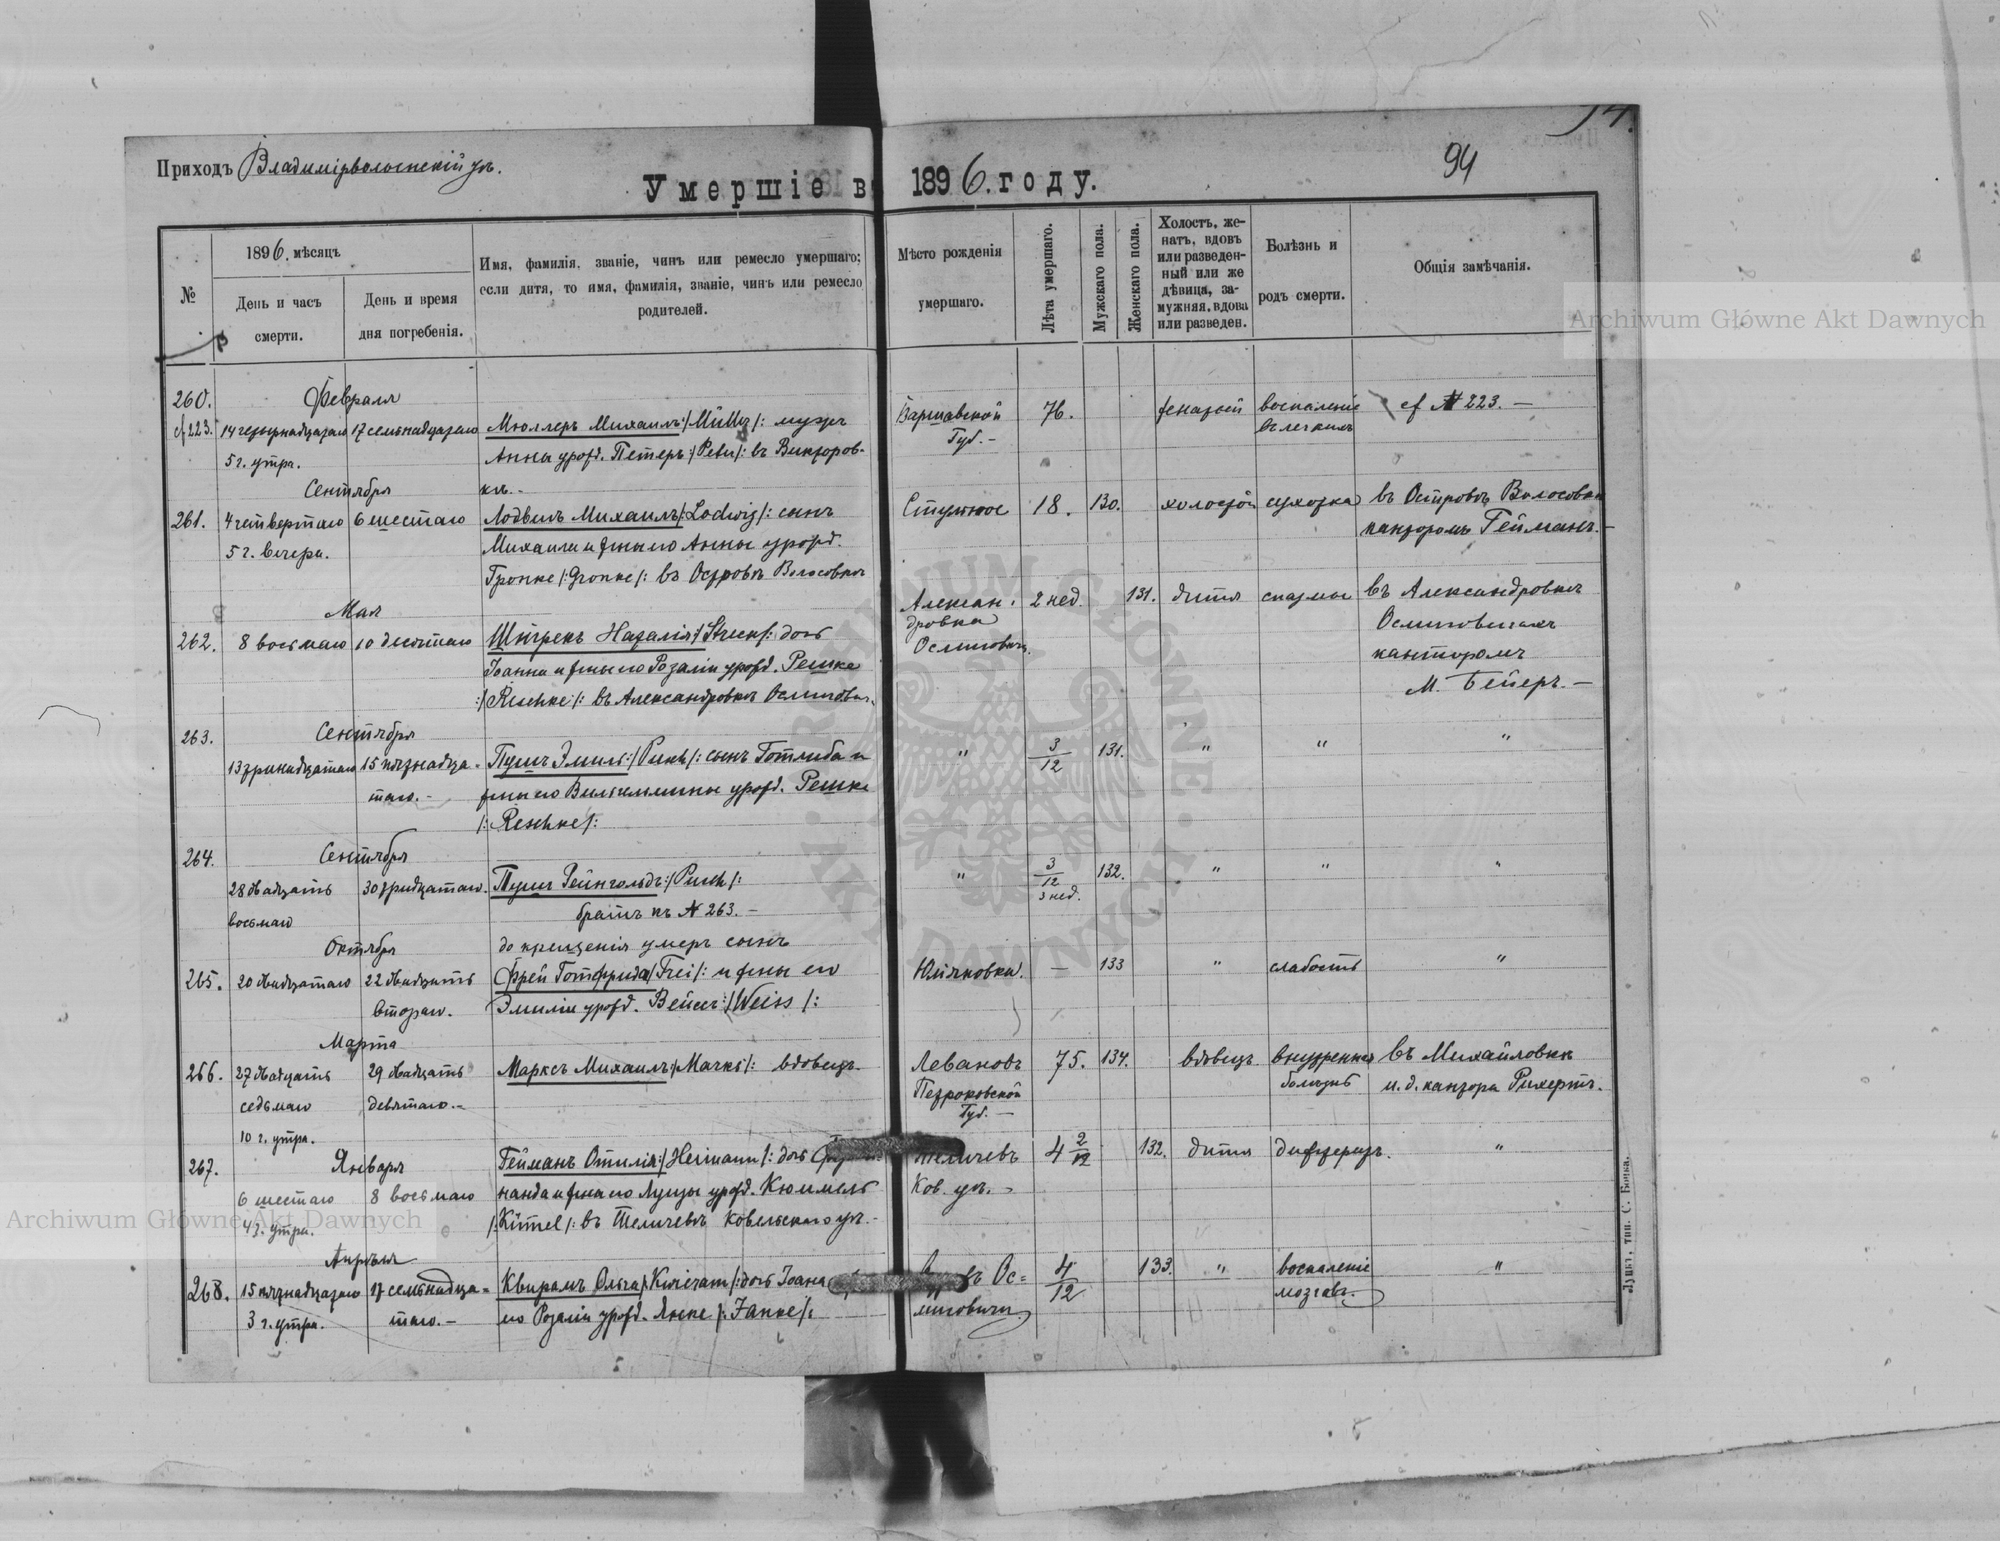 94
Приходъ Владимірволынскій уѣ.
Умершіе въ 1896. году.
№
1896. мѣсяцъ
День и часъ смерти.
День и время дня погребенія.
Имя, фамилія, званіе, чинъ или ремесло умершаго;
если дитя, то имя, фамилія, званіе, чинъ или ремесло
родителей.
Мѣсто рожденія
умершаго.
Лѣта умершаго.
Мужскаго пола.
Женскаго пола.
Холостъ, же-
натъ, вдовъ
или разведен-
ный или же
дѣвица, за-
мужняя, вдова
или разведен.
Болѣзнь и
родъ смерти.
Общія замѣчанія.
260.
cf 223.
Февраля
14 четырнадцатаго 17 семьнадцатаго
5 г. утра.
Мюллеръ Михаилъ /Müller/: мужъ
Анны урожд. Петеръ /Peter/: въ Викторов-
кѣ.-
Варшавской
Губ.-
76.
женатый
воспаленіе
въ легкихъ
cf № 223. —
261.
Сентября
4 четвертаго 6 шестаго
5 г. вечера.
Лодвигъ Михаилъ /Lodwig/: сынъ
Михаила и жены его Анны урожд.
Гропке /:Gropke/: въ Островѣ Волосовкѣ
18. 130. холостой сухотка
въ Островѣ Волосовкѣ
канторомъ Гейманъ.-
262.
Мая
8 восьмаго 10 десятаго
Штрекъ Наталія /Streck/: дочь
Іоанна и жены его Розаліи урожд. Решке
:/Reschke/: въ Александровкѣ Осмиговичъ
Алексан-
дровка
Осмиговичъ.
2 нед. 131. дитя спазмы
въ Александровкѣ
Осмиговичахъ
канторомъ
М. Бейеръ.—
263.
Сентября
13 тринадцатаго 15 пятнадца-
таго.-
Пушъ Эмиль:/Pusch/: сынъ Готлиба и
жены его Вильгельмины урожд. Решке
/:Reschke/:
" 3/12 131. " " "
264.
Сентября
28 двадцать
восьмаго
30 тридцатаго.
Пушъ Рейнгольдъ:/Pusch/:
братъ къ № 263.—
" 3/12 3 нед. 132. " " "
265.
Октября
20 двадцатаго
22 двадцать
втораго.
до крещенія умеръ сынъ
Фрей Готфрида /Frei/: и жены его
Эмиліи урожд. Вейсъ:/Weiss/:
— 133 " слабость "
266.
Марта
27 двадцать
седьмаго
10 г. утра.
29 двадцать
девятаго.-
Марксъ Михаилъ /Marks/: вдовецъ.
Левановъ
Петроковской
Губ.—
75. 134. вдовецъ
внутренняя
болѣзнь
въ Михайловкѣ
и. д. кантора Рихертъ.
267.
Января
6 шестаго
4 г. утра.
8 восьмаго
Гейманъ Отилія /Heimann/: дочь
нанда и жены его Луизы урожд. Кюммель
/:Kümel/: въ Теличевѣ Ковельскаго уѣ.-
Ков. уѣ.-
4 2/12 132. дитя дифтеритъ. "
268.
Апрѣля
15 пятнадцатаго
3 г. утра.
17 семьнадца-
таго.—
Квирамъ Ольга дочь Іоана
его Розаліи урожд. Янке /:Janke/:
въ Ос-
миговичи
4/12 133. "
воспаленіе
мозгавъ.
"
Луцкъ, тип. С. Бонка.
Archiwum Główne Akt Dawnych
Archiwum Główne Akt Dawnych
ARCHIWUM GŁÓWNE AKT DAWNYCH